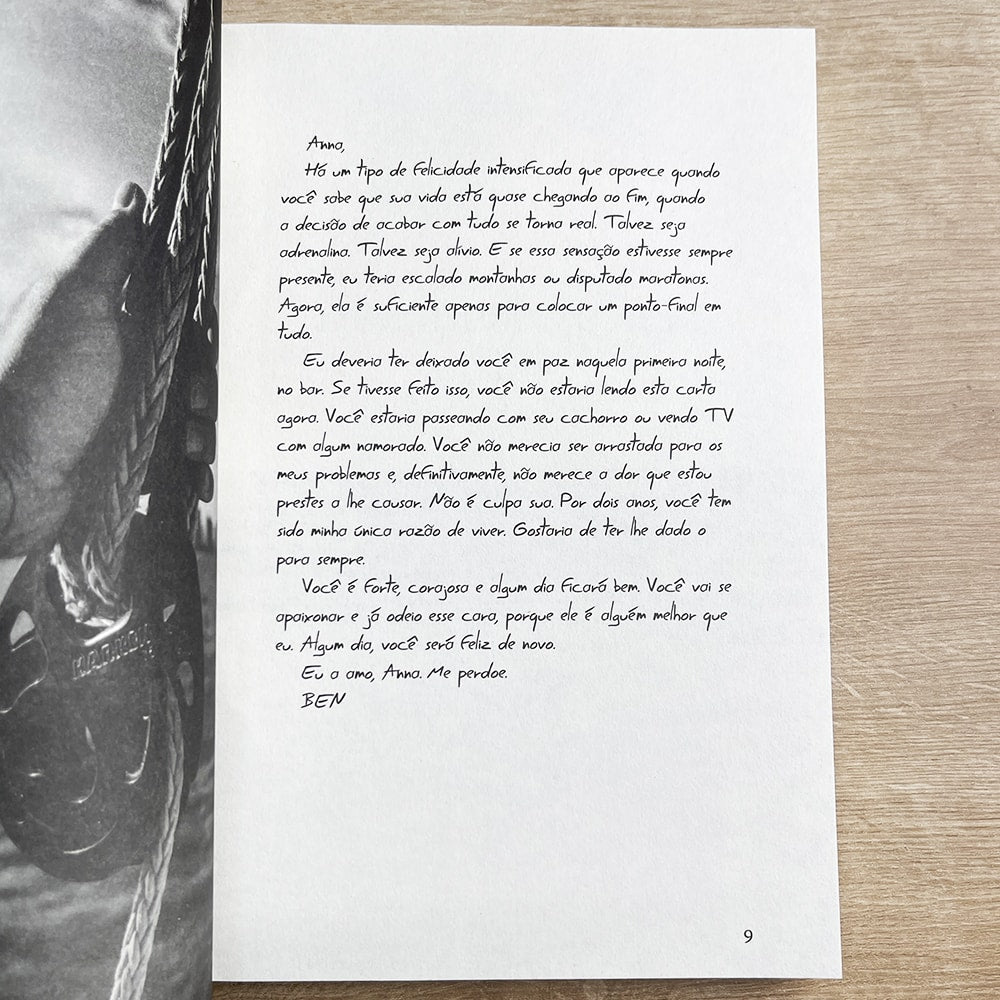 Anna,
Há um tipo de felicidade intensificada que aparece quando
você sabe que sua vida está quase chegando ao fim, quando
a decisão de acabar com tudo se torna real. Talvez seja
adrenalina. Talvez seja alívio. E se essa sensação estivesse sempre
presente, eu teria escalado montanhas ou disputado maratonas.
Agora, ela é suficiente apenas para colocar um ponto-final em
tudo.
Eu deveria ter deixado você em paz naquela primeira noite,
no bar. Se tivesse feito isso, você não estaria lendo esta carta
agora. Você estaria passeando com seu cachorro ou vendo TV
com algum namorado. Você não merecia ser arrastada para os
meus problemas e, definitivamente, não merece a dor que estou
prestes a lhe causar. Não é culpa sua. Por dois anos, você tem
sido minha única razão de viver. Gostaria de ter lhe dado o
para sempre.
Você é forte, corajosa e algum dia ficará bem. Você vai se
apaixonar e já odeio esse cara, porque ele é alguém melhor que
eu. Algum dia, você será feliz de novo.
Eu a amo, Anna. Me perdoe.
BEN
9